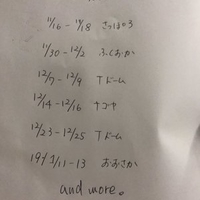 11/16 - 11/18 さっぽろ
11/30 - 12/2 ふくおか
12/7 - 12/9 Tドーム
12/14 - 12/16 ナゴヤ
12/23 - 12/25 Tドーム
19年1/11-13 おおさか
and more。